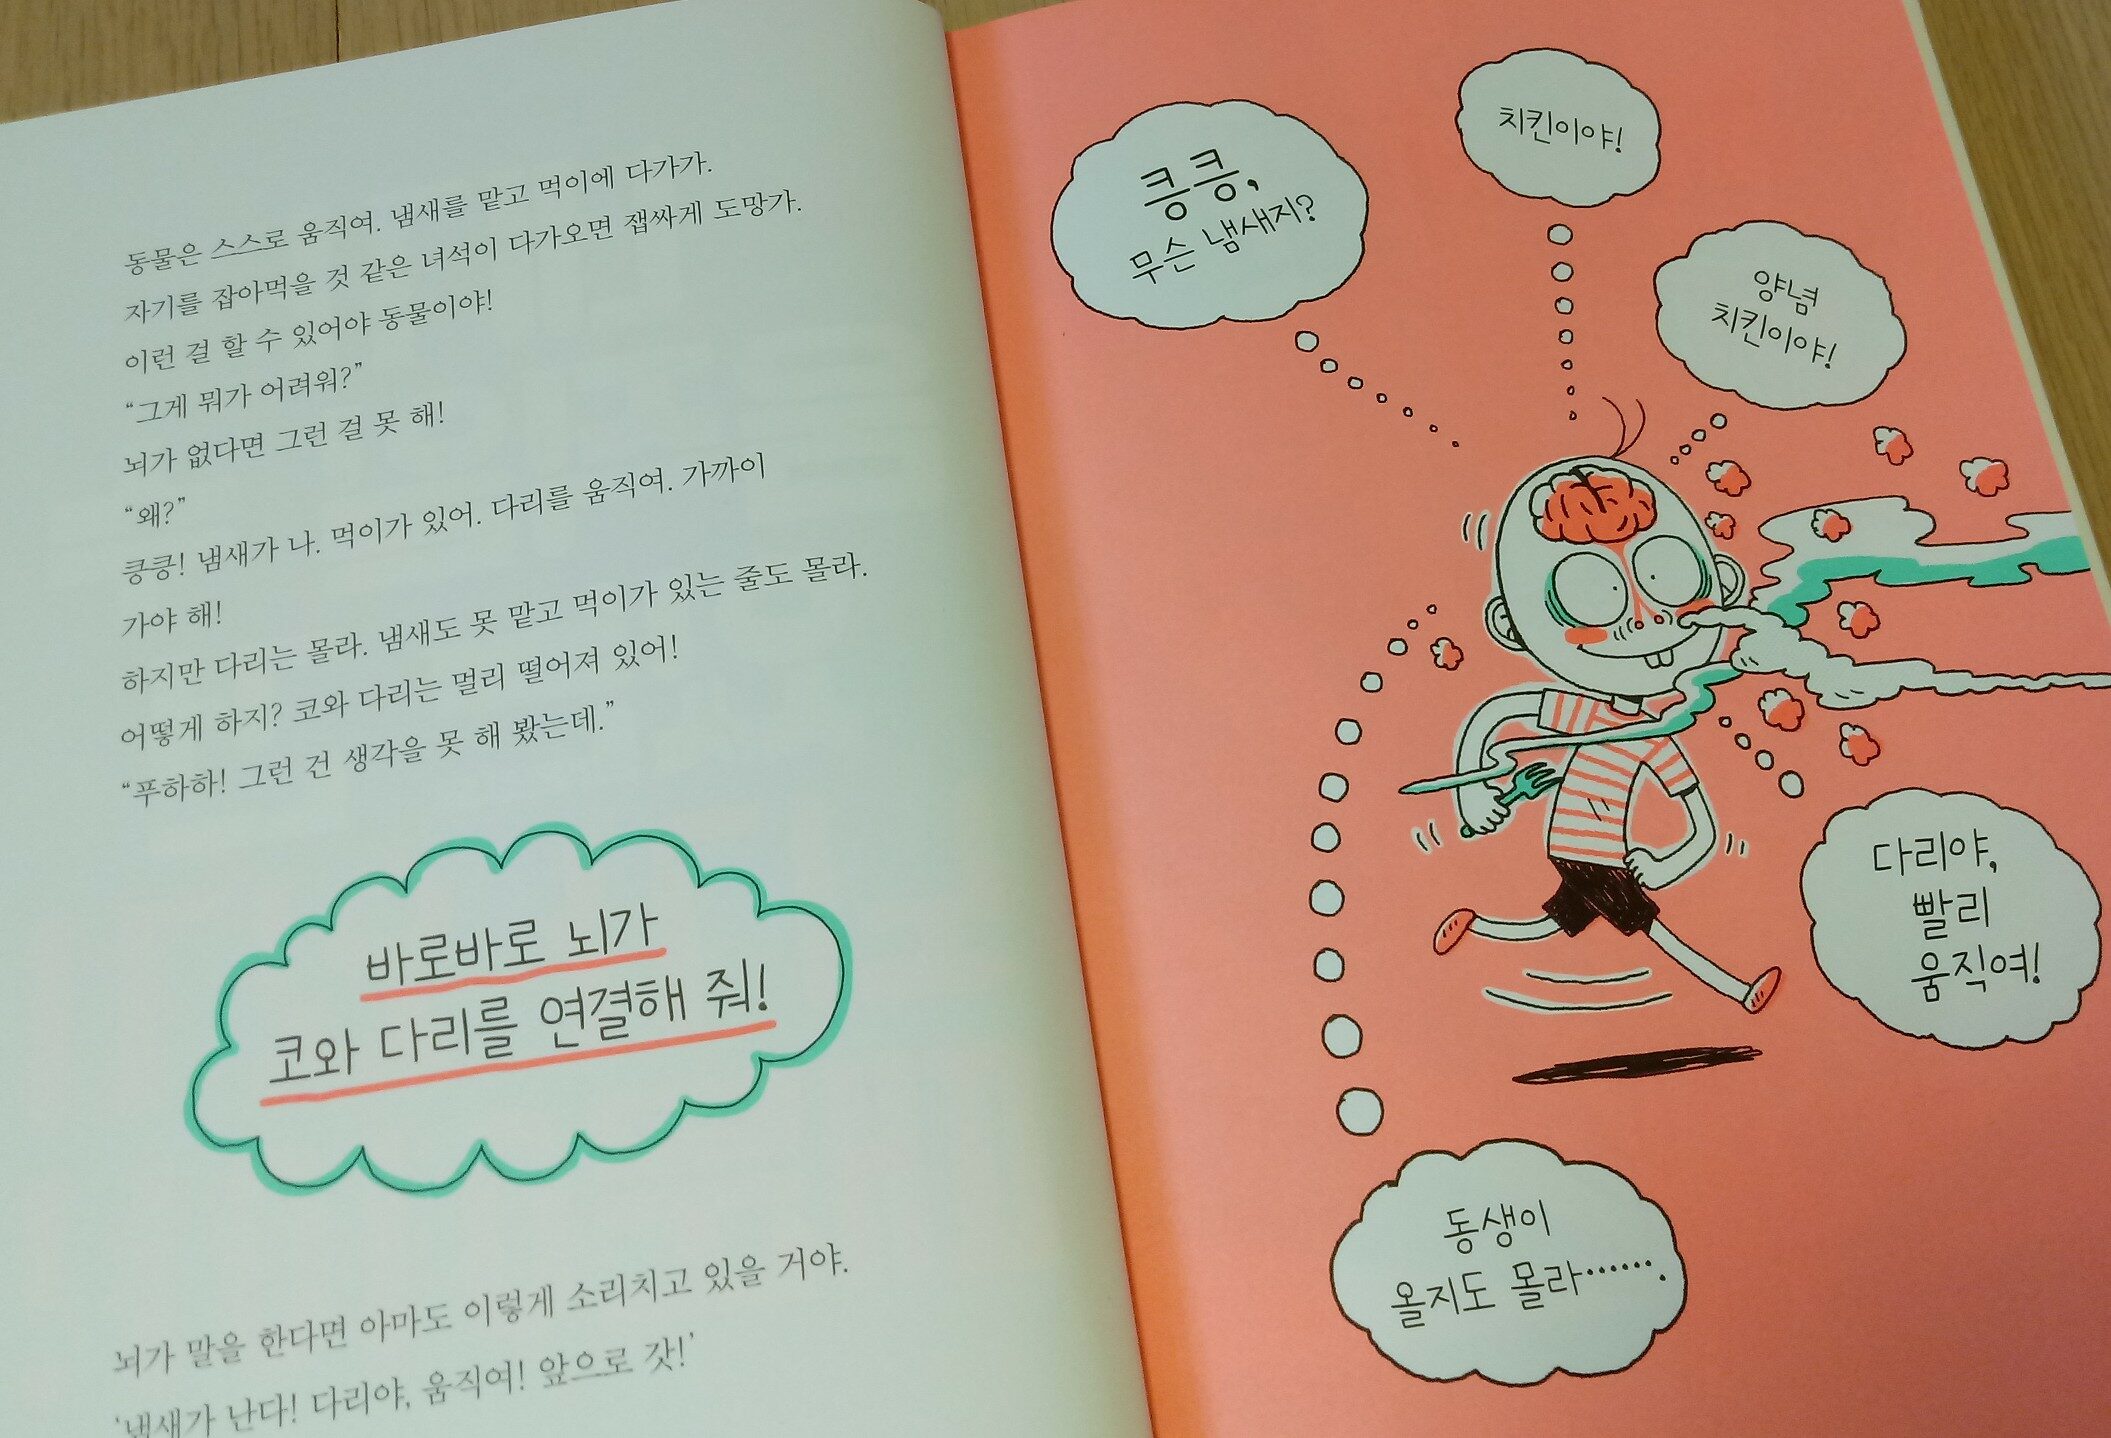 동물은 스스로 움직여. 냄새를 맡고 먹이에 다가가.
자기를 잡아먹을 것 같은 녀석이 다가오면 잽싸게 도망가.
이런 걸 할 수 있어야 동물이야!
“그게 뭐가 어려워?”
뇌가 없다면 그런 걸 못 해!
“왜?”
킁킁! 냄새가 나. 먹이가 있어. 다리를 움직여. 가까이
가야 해!
하지만 다리는 몰라. 냄새도 못 맡고 먹이가 있는 줄도 몰라.
어떻게 하지? 코와 다리는 멀리 떨어져 있어!
“푸하하! 그런 건 생각을 못 해 봤는데.”
바로바로 뇌가
코와 다리를 연결해 줘!
뇌가 말을 한다면 아마도 이렇게 소리치고 있을 거야.
‘냄새가 난다! 다리야, 움직여! 앞으로 갓!’
킁킁,
무슨 냄새지?
치킨이야!
양념
치킨이야!
다리야,
빨리
움직여!
동생이
올지도 몰라…….